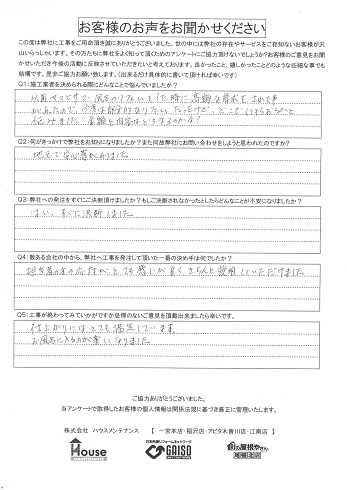 お客様のお声をお聞かせください
この度は弊社に工事をご用命頂き誠にありがとうございました。世の中には弊社の存在やサービスをご存知ないお客様が沢
山いらっしゃいます。その方たちに弊社をよく知って頂くためのアンケートにご協力頂けないでしょうか?お客様のご意見をお聞
かせいただき今後の活動に反映させていただきたいと考えております。良かったこと、嬉しかったことどのような些細な事でも
結構です。是非ご協力お願い致します。（出来るだけ具体的に書いて頂ければ幸いです）
Q1:施工業者を決められる際にどんなことで悩んでいましたか?
があったので、今度は部分的なリフォームだったけど、どこに
悩みました。金額と内容はどうなるのか?
Q2:何がきっかけで弊社をお知りになりましたか?また何故弊社にお問い合わせをしようと思われたのですか?
地元で安心感がありました
Q3:弊社への発注をすぐにご決断頂けましたか?もしご決断されなかったとしたらどんなことが不安になりましたか?
はい。すぐに決断しました。
Q4:数ある会社の中から、弊社へ工事を発注して頂いた一番の決め手は何でしたか?
担当者の方の応対が、とても感じが良く、きちんと説明していただけました
Q5:工事が終わってみていかがですか忌憚のないご意見を頂戴出来ましたら幸いです。
仕上がりにはとても満足しています。
お風呂に入るのが楽しくなりました
ご協力ありがとうございました。
当アンケートで取得したお客様の個人情報は関係法規に基づき厳正に管理いたします。
株式会社 ハウスメンテナンス 【 一宮本店・稲沢店・アピタ木曽川店・江南店 】
House
日本外装リフォームネットワーク
GAISO